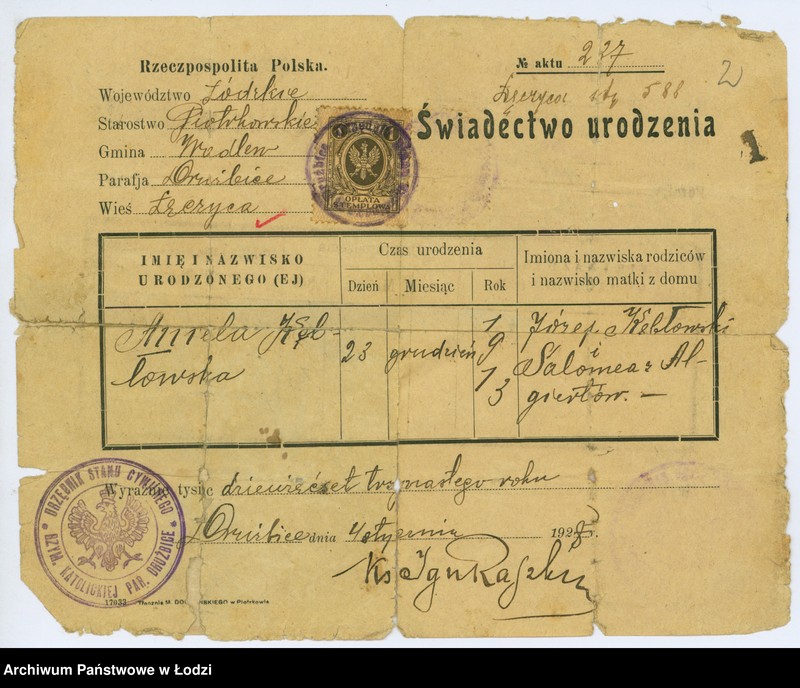 Rzeczpospolita Polska.
№ aktu 237
2
Województwo Łódzkie
Łęczyca str 588
Starostwo Piotrkowskie
Świadectwo urodzenia
1
Gmina Wadlew
Parafja Drużbice
Wieś Łęczyca
OPŁATA
STEMPLOWA
IMIĘ I NAZWISKO
URODZONEGO (EJ)
Czas urodzenia
Dzień Miesiąc Rok
Imiona i nazwiska rodziców
i nazwisko matki z domu
Aurela Kęb-
łowska
23 grudzień 1913
Józep Kębłowski
i
Salomea z Al-
giertów. —
Wyraźnie tysiąc dziewięćset trzynastego roku
Drużbice dnia 4 stycznia 1928 r.
Ks Ign
URZĘDNIK STANU CYWILNEGO
WYZN. KATOLICKIEJ PAR. DRUŻBICE
17033 Tłocznia M. DOBRZAŃSKIEGO w Piotrkowie
Archiwum Państwowe w Łodzi